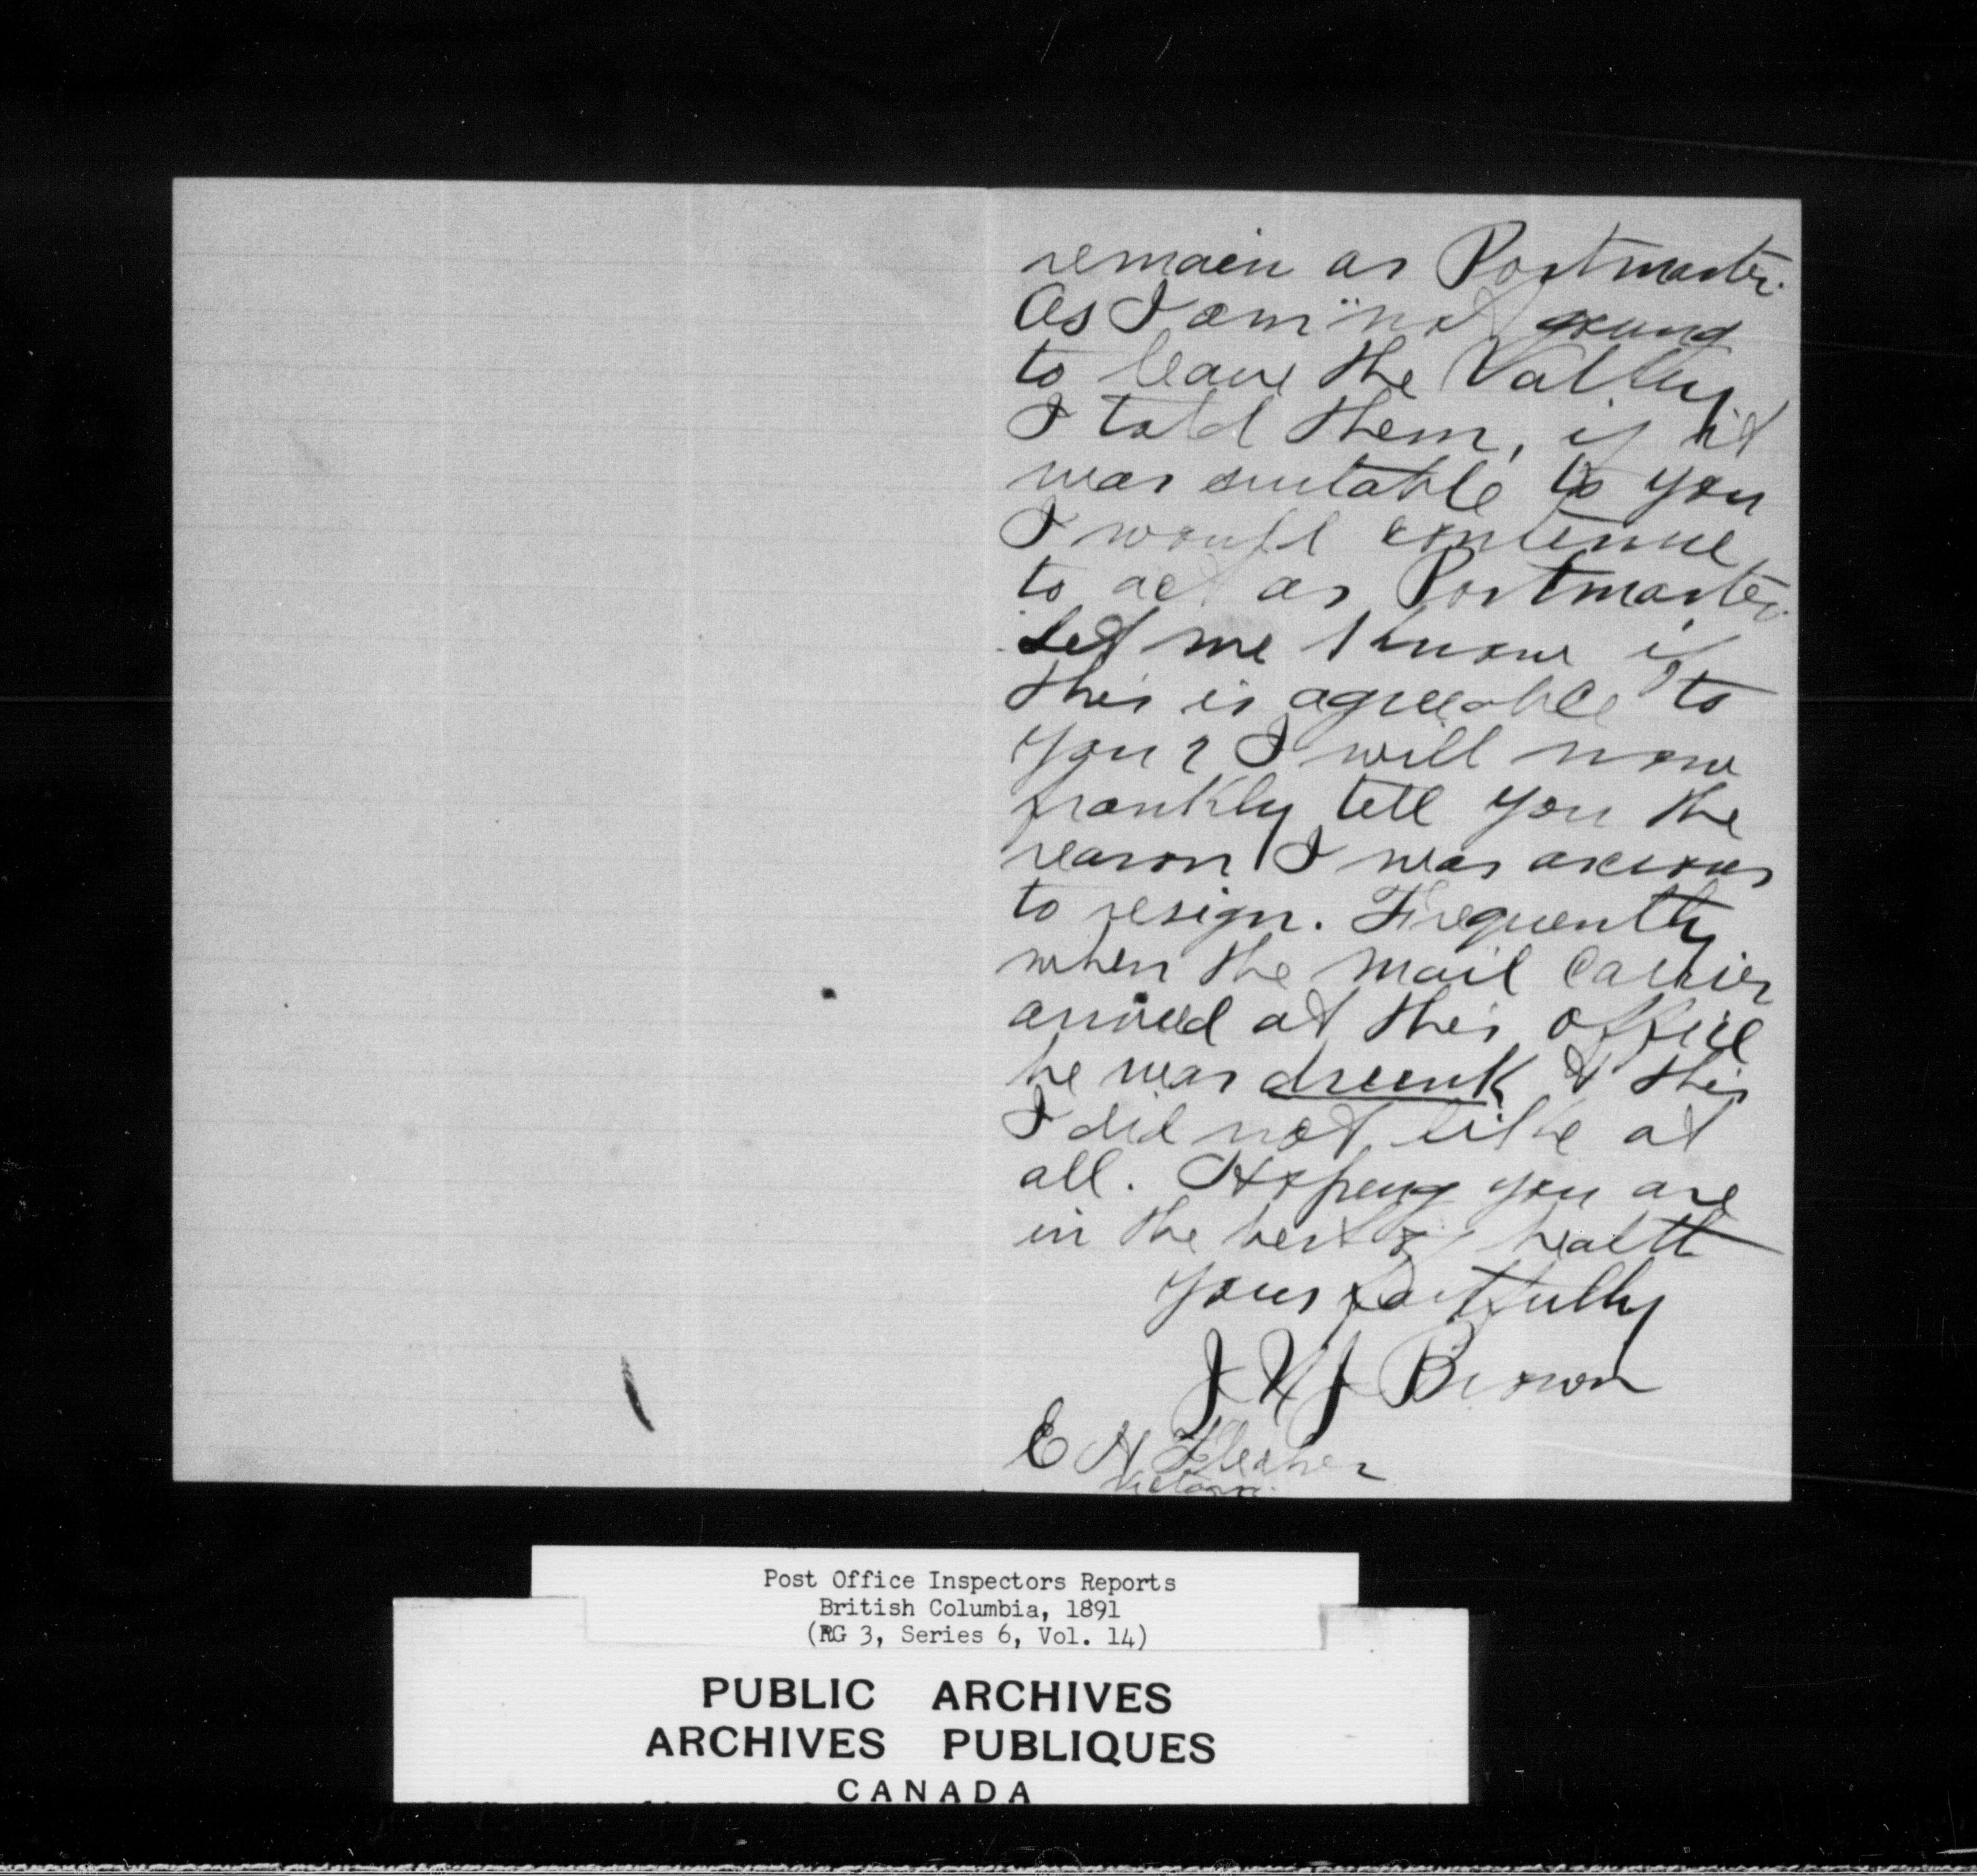 remain as Postmaster.
As I am not going
to leave the Valley
I told them, if it
was suitable to you
I would continue
to act as Postmaster.
Let me know if
this is agreeable to
you? I will now
frankly tell you the
reason I was anxious
to resign. Frequently
when the mail carrier
arrived at this office
he was drunk & this
I did not like at
all. Hoping you are
in the best of health
Yours faithfully
Brown
E H Fletcher
Victoria.
Post Office Inspectors Reports
British Columbia, 1891
(RG 3, Series 6, Vol. 14)
PUBLIC ARCHIVES
ARCHIVES PUBLIQUES
CANADA